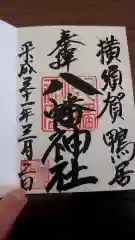 横須賀鴨居
奉拝
八幡神社
平成三十一年三月二日